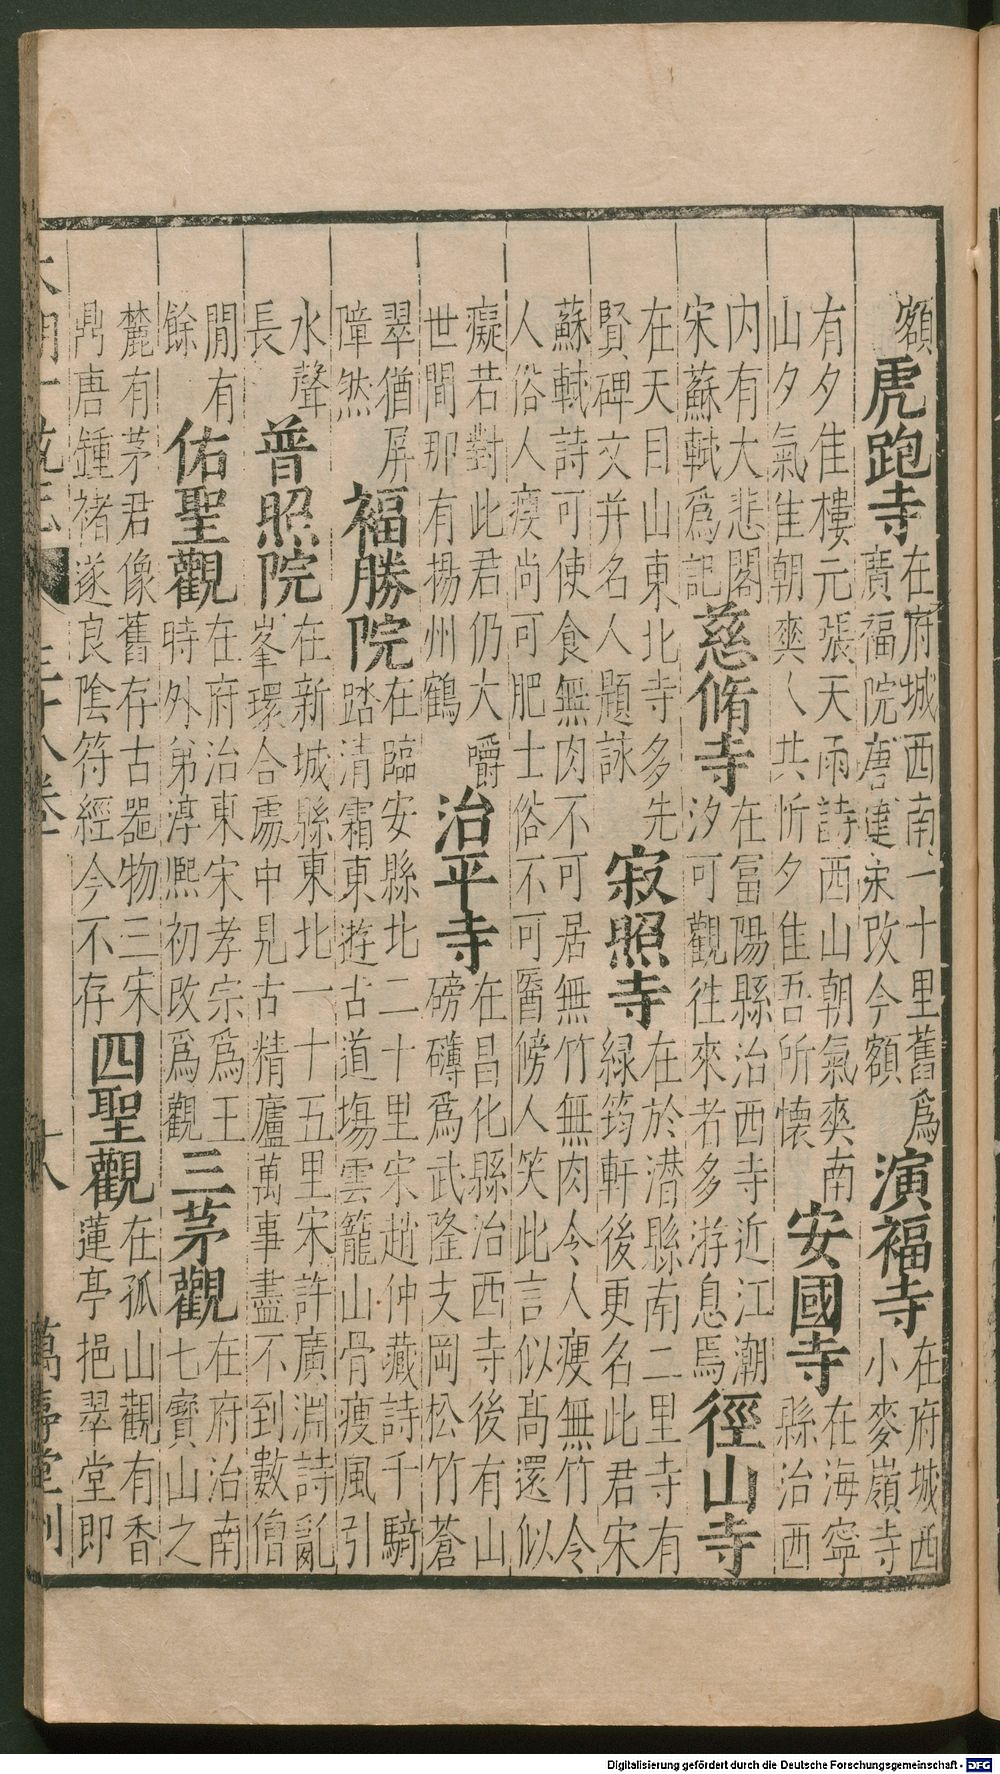 額
虎跑寺
在府城西南一十里舊爲
廣福院唐建宋改今額
演福寺
在府城西
小麥嶺寺
有夕佳樓元張天雨詩西山朝氣爽南
山夕氣佳朝爽人共忻夕佳吾所懷
安國寺
在海寧
縣治西
内有大悲閣
宋蘇軾爲記
慈脩寺
在富陽縣治西寺近江潮
汐可觀徃來者多游息焉
徑山寺
在天目山東北寺多先
賢碑文并名人題詠
寂照寺
在於潜縣南二里寺有
緑筠軒後更名此君宋
蘇軾詩可使食無肉不可居無竹無肉令人瘦無竹令
人俗人瘦尚可肥士俗不可醫傍人笑此言似髙還似
癡若對此君仍大嚼
世間那有揚州鶴
治平寺
在昌化縣治西寺後有山
磅礴爲武隆支岡松竹蒼
翠猶屏
障然
福勝院
在臨安縣北二十里宋趙仲藏詩千騎
踏清霜東遊古道塲雲籠山骨瘦風引
水聲
長
普照院
在新城縣東北一十五里宋許廣淵詩亂
峯環合處中見古精廬萬事盡不到數僧
閒有
餘
佑聖觀
在府治東宋孝宗爲王
時外第淳熙初改爲觀
三茅觀
在府治南
七寶山之
麓有茅君像舊存古器物三宋
鼎唐鍾褚遂良陰符經今不存
四聖觀
在孤山觀有香
蓮亭挹翠堂即
大明一統志 三十八卷 十八 萬壽堂刊
Digitalisierung gefördert durch die Deutsche Forschungsgemeinschaft - DFG